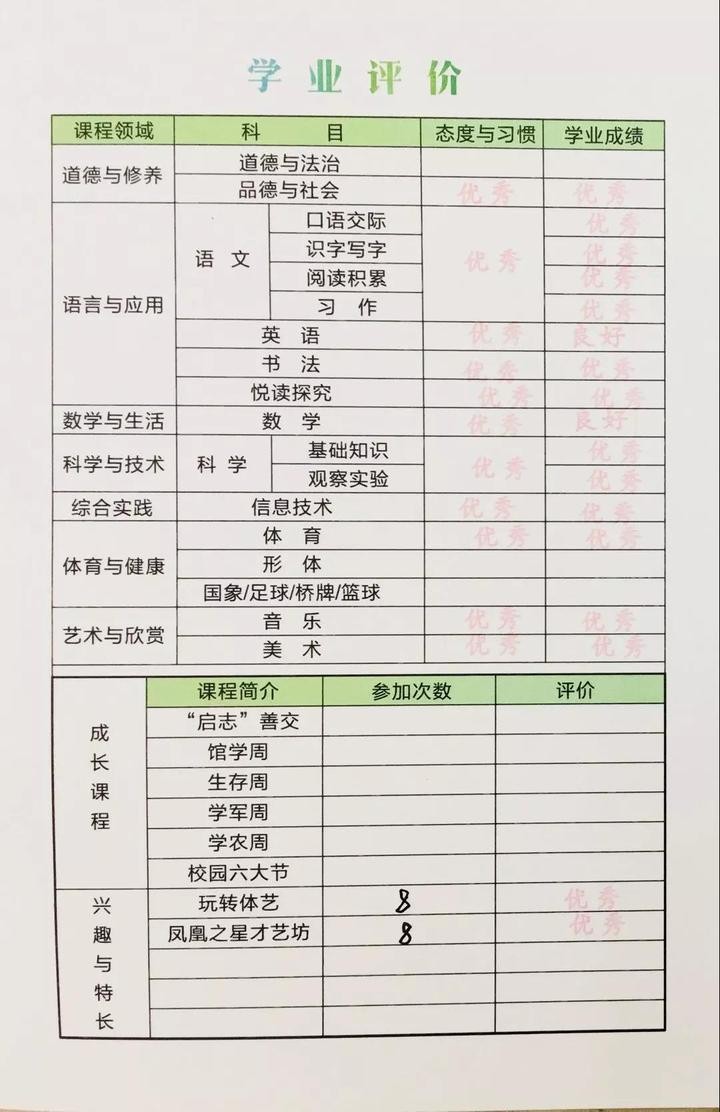 学业评价
课程领域 科目 态度与习惯 学业成绩
道德与修养 道德与法治
品德与社会 优秀 优秀
语言与应用 语文 口语交际 优秀 优秀
识字写字 优秀
阅读积累 优秀
习作 优秀
英语 优秀 良好
书法 优秀 优秀
悦读探究 优秀 优秀
数学与生活 数学 优秀 良好
科学与技术 科学 基础知识 优秀 优秀
观察实验 优秀
综合实践 信息技术 优秀 优秀
体育与健康 体育 优秀 优秀
形体
国象/足球/桥牌/篮球
艺术与欣赏 音乐 优秀 优秀
美术 优秀 优秀
成长课程 课程简介 参加次数 评价
“启志”善交
馆学周
生存周
学军周
学农周
校园六大节
兴趣与特长 玩转体艺 8 优秀
凤凰之星才艺坊 8 优秀